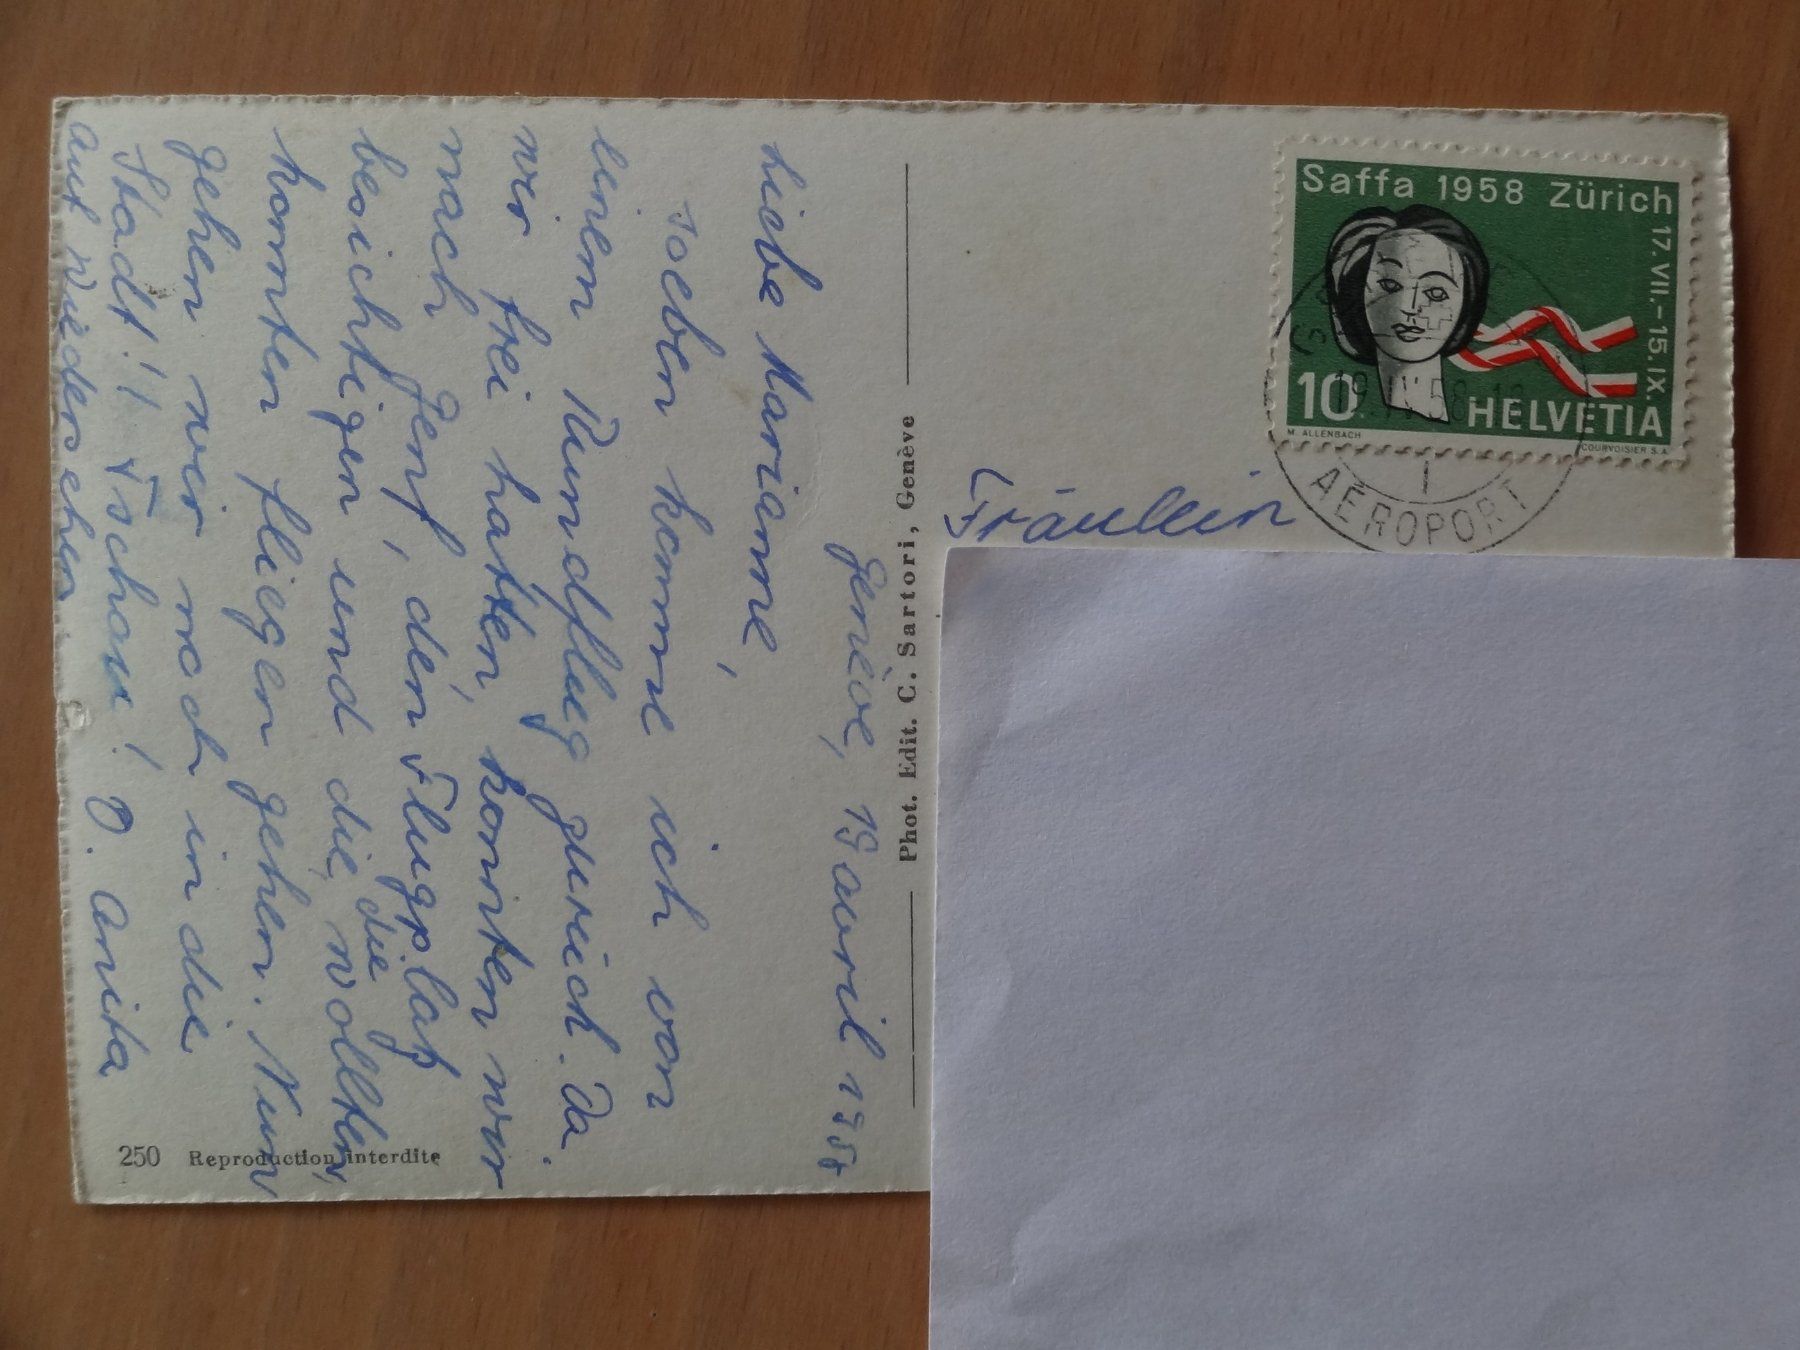 Genève, 19 avril 1958
Liebe Marianne,
soeben komme ich von
einem Rundflug zurück. Da
wir frei hatten, konnten wir
nach Genf, den Flugplatz
besichtigen und die, die wollten,
konnten fliegen gehen. Nun
gehen wir noch in die
Stadt!! Tschau! D. Anita
auf Wiedersehen
250 Reproduction interdite
Phot. Edit. C. Sartori, Genève
Saffa 1958 Zürich
17. VII. – 15. IX.
10 HELVETIA
M. ALLENBACH COURVOISIER S.A.
AÉROPORT
Fräulein